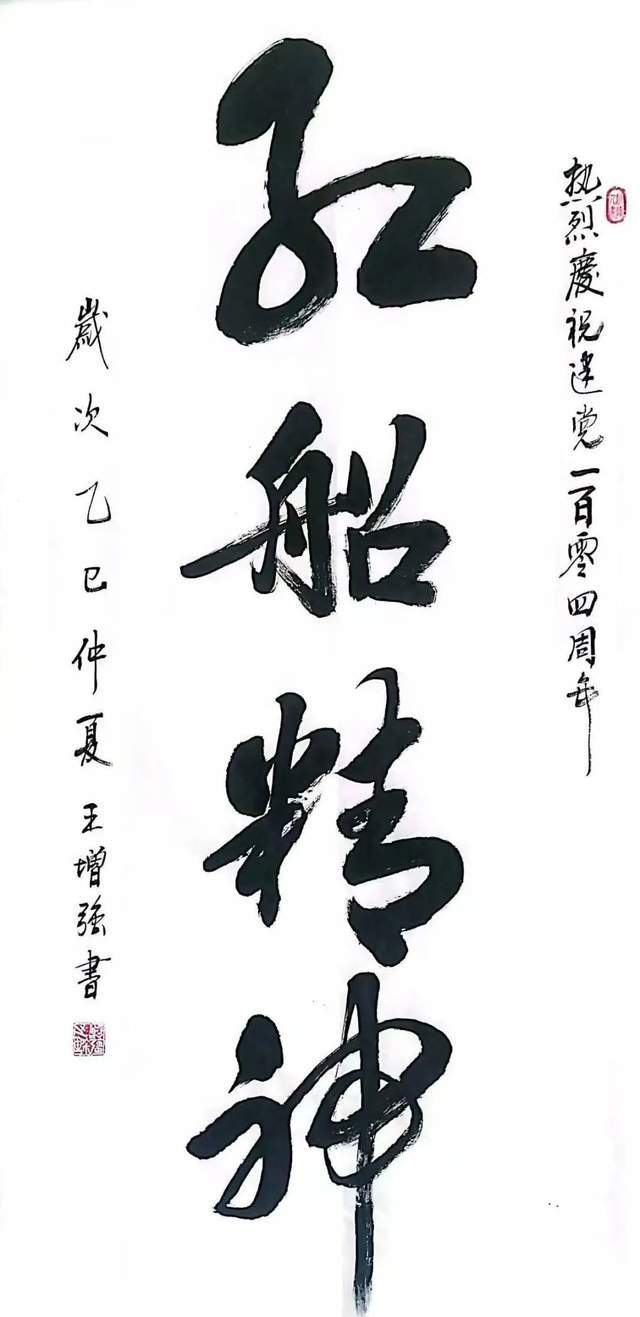 热烈慶祝建党一百零四周年
红船精神
歲次乙巳仲夏王增强書